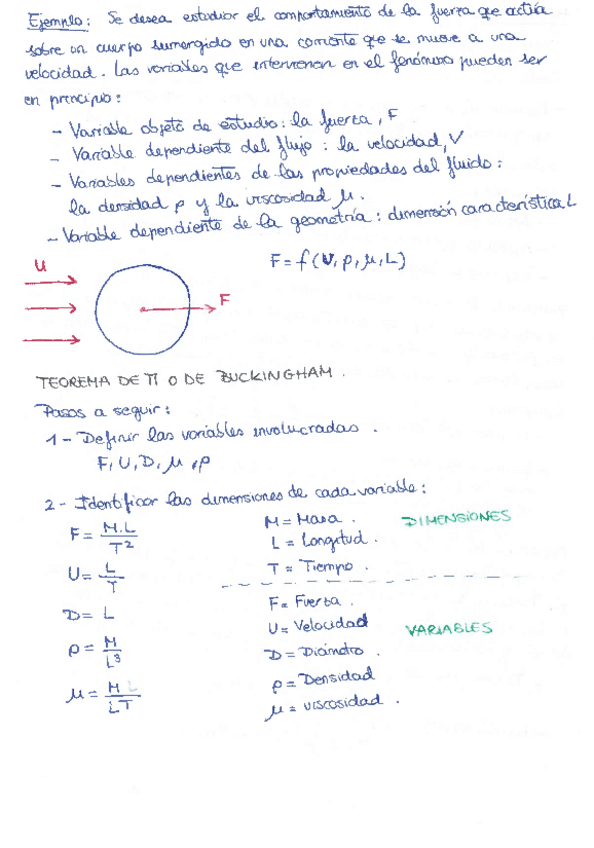 Ejemplo: Se desea estudiar el comportamiento de la fuerza que actúa
sobre un cuerpo sumergido en una corriente que se mueve a una
velocidad. Las variables que intervienen en el fenómeno pueden ser
en principio:
- Variable objeto de estudio: la fuerza, F
- Variable dependiente del flujo: la velocidad, V
- Variables dependientes de las propiedades del fluido:
la densidad ρ y la viscosidad μ.
- Variable dependiente de la geometría: dimensión característica L
F = f(U, ρ, μ, L)
U
F
TEOREMA DE Π O DE BUCKINGHAM.
Pasos a seguir:
1- Definir las variables involucradas.
F, U, D, μ, ρ
2- Identificar las dimensiones de cada variable:
F = M.L / T² M = Masa. DIMENSIONES
L = Longitud.
U = L / T T = Tiempo.
D = L F = Fuerza.
U = Velocidad VARIABLES
ρ = M / L³ D = Diámetro.
ρ = Densidad
μ = M / LT μ = viscosidad.